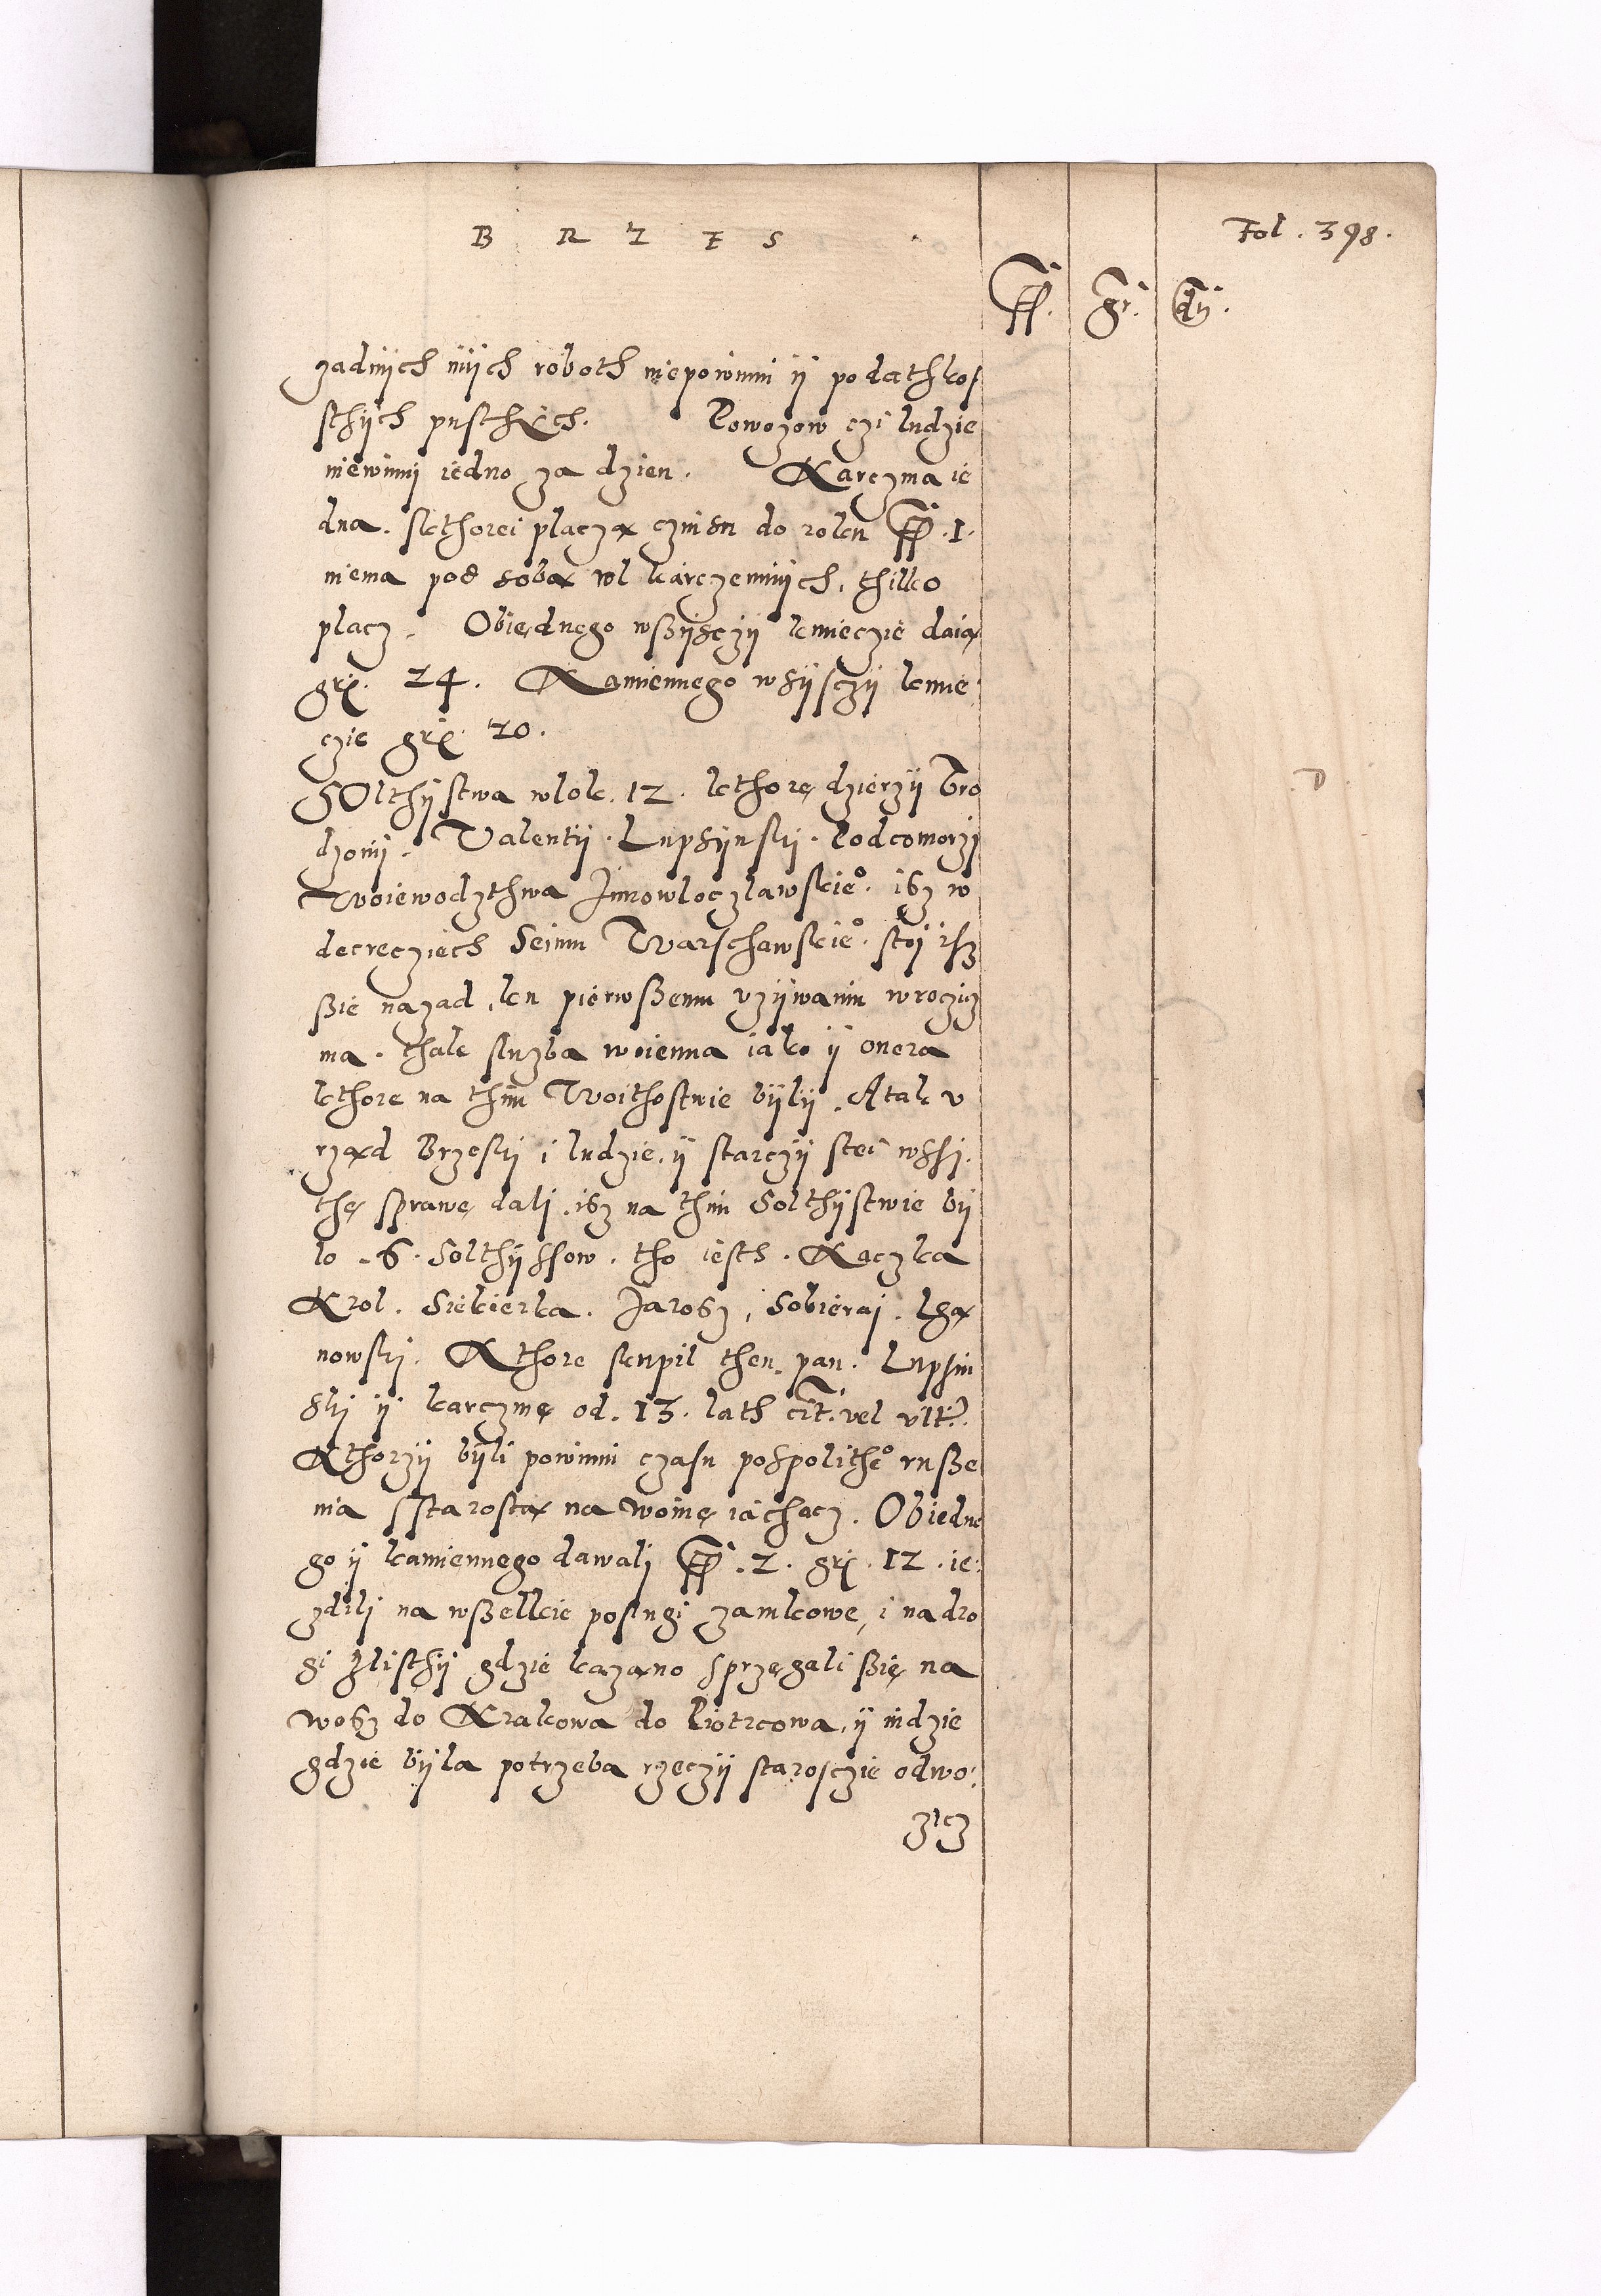 B R Z E S
Fol. 398.
fl. gr. d.
zadnÿch inÿch roboth niepowinni ÿ podathkoſ
sthÿch pusthÿch. Powozow czi ludzie
niewinni iedno za dzien. Karczma ie
dna. skthorei placzą czinsu do roku fl. 1.
niema pod sobą wl karczemnÿch, thilko
placz. Obiednego wßÿsczÿ kmieczie daią
grː 24. Kamiennego wsÿsczÿ kmie
czie grː 20.
SOlthÿstwa wlok. 12. kthorę dzierzÿ Vro
dzonÿ. Valentÿ. Lupsÿnski. Podcomorzi
Woiewodzthwa Jnnowloczlawskie°. isz w
decreczięch Seimu Warschawskie°. stoi isz
ßie nazad, ku pierwßemu vzÿwaniu wroczicz
ma. thak służba woienna iako ÿ onera
kthore na thim Woithostwie bÿlÿ. A tak v
rząd Brzeski i ludzie, ÿ starczÿ stei wssi.
thę sprawę dali. isz na thim Solthÿstwie bÿ
lo. 6. Solthÿssow. tho iesth. Kaczka
Krol. Siekierka. Jarosz, Sobierai. Lgą
nowski. Kthore skupil then pan. Lupsin
ski ÿ karczmę od. 13. lath cit. vel vlt.
Kthorzÿ bÿli powinni czasu pospolithe° ruße
nia sstarostą na woinę iachacz. Obiedne
go ÿ kamiennego dawali fl. 2. grː 12. ie:
zdili na wßelkie poslugi zamkowe, i na dro
gi Zlisthÿ gdzie kazano sprzęgali ßię na
wosz do Krakowa do Piotrcowa, ÿ indzie
gdzie bÿla potrzeba rzeczÿ starosczie odwo:
zicz